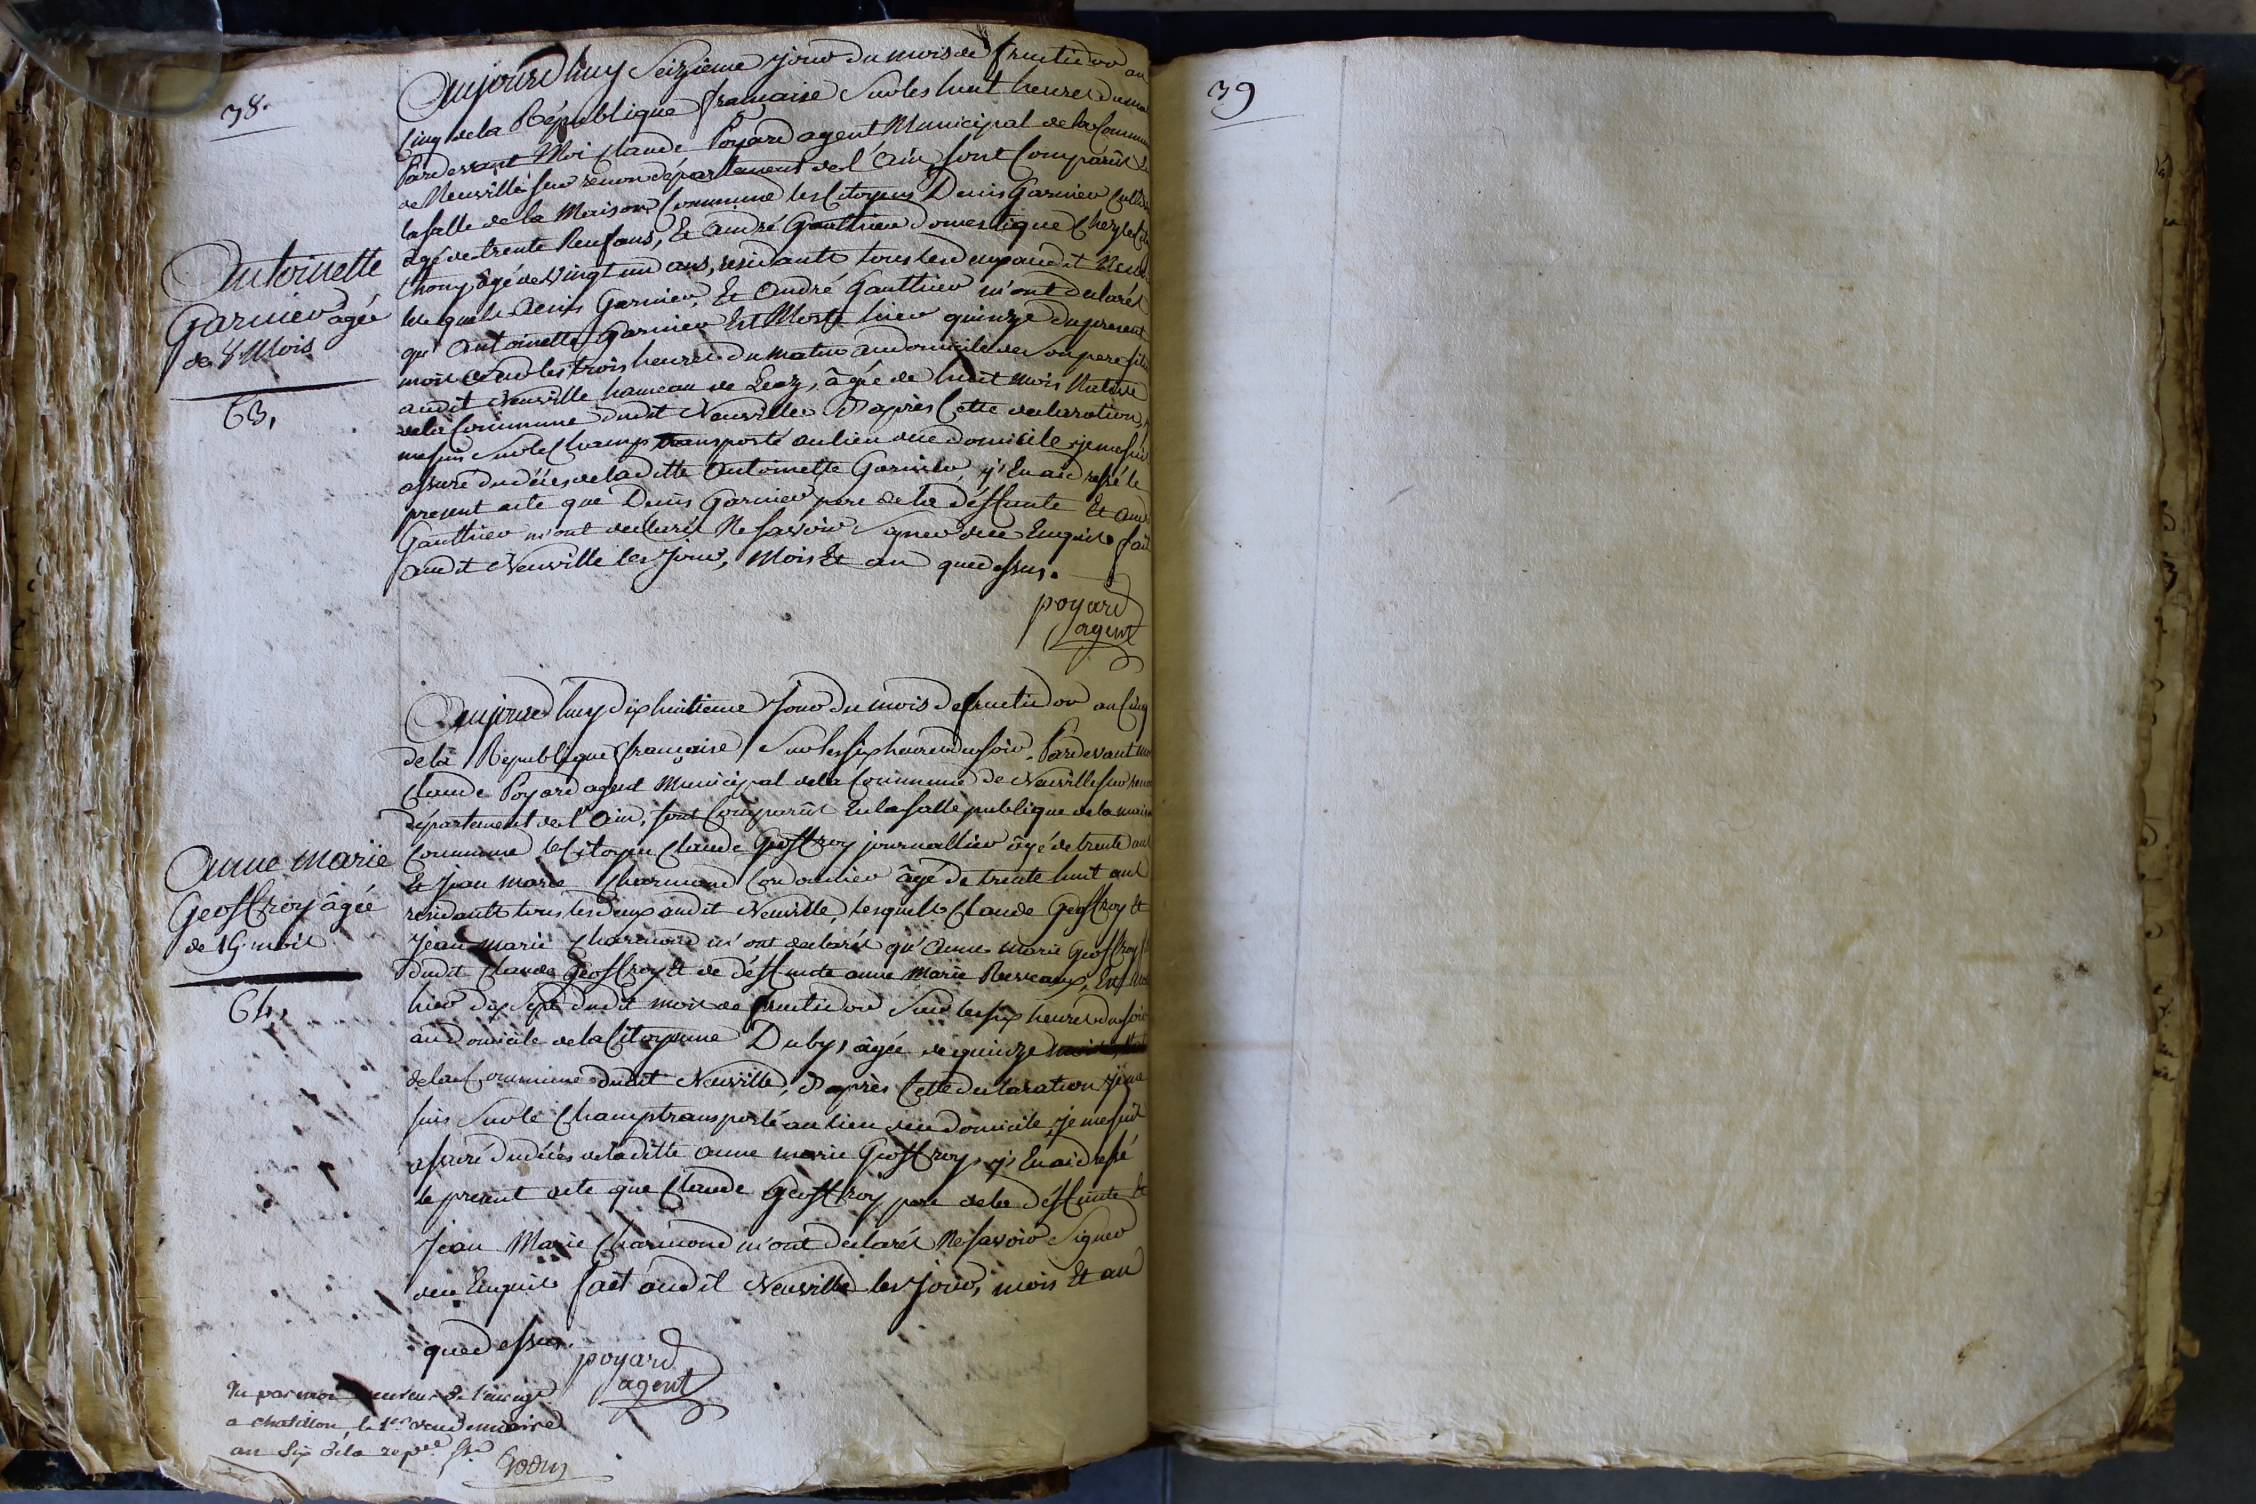 38.
Aujourd'huy Seizieme jour du mois de fructidor an
Cinq de la République francaise Sur les huit heures du ma
Pardevant Moi Claude Poyard agent Municipal de la Commu
de Neuville sur renon département de l'Ain, sont Comparût
la salle de la Maison Commune les Citoyens Denis Garnier
agé de trente Neuf ans, Et andré Gauthier domestique Chez le
Chony âgé de Vingt un ans, residants tous les deux audit Neuv
lesquels denis Garnier, Et andré Gauthier m'ont declarés
qu'Antoinette Garnier Est Morte hier quinze du present
mois Sur les trois heures du matin au domicile de Son pere
audit Neuville hameau de âgée de huit mois Native
de la Commune dudit Neuville D'après Cette declaration
me suis Sur le Champ transporté au lieu dudit domicile, je me suis
assuré du décès de laditte Antoinette Garnier, j'en ai dressé le
present acte que Denis Garnier pere de la déffunte Et
Gauthier m'ont declarés Ne savoir Signer de ce Enquis fait
audit Neuville les Jour, Mois Et an que dessus.
poyard
agent
Antoinette
Garnier âgée
de 8 Mois
63,
Aujourd'huy dix huitieme Jour du mois de fructidor an Cinq
de la République française Sur les six heures du soir, Pardevant
Claude Poyard agent Municipal de la Commune de Neuville sur
département de l'Ain, sont Comparût En la salle publique de la
Commune le Citoyen Claude Geoffroy journallier âgé de trente ans
Et Jean marie Charmond Cordonnier âgé de trente huit ans
residants tous les deux audit Neuville, lesquels Claude Geoffroy Et
Jean marie Charmond m'ont declarés qu'Anne marie Geoffroy
dudit Claude Geoffroy Et de déffunte anne marie Est
hier dix Sept dudit mois de fructidor Sur les six heures du soir
au domicile de la Citoyenne Duby, âgée de quinze
de la Commune dudit Neuville, D'après Cette declaration je me
suis Sur le Champ transporté au lieu dudit domicile, je me suis
assuré du décès de laditte anne marie Geoffroy, j'En ai dressé
le present acte que Claude Geoffroy pere de la déffunte Et
Jean Marie Charmond m'ont declarés Ne savoir Signer
de ce Enquis fait audit Neuville les Jour, mois Et an
que dessus.
poyard
agent
Anne marie
Geoffroy âgée
de 15 mois
64,
Vu par moi de l'enreg.
a chatillon, le 1er vendemiaire
an Six de la rep.
39